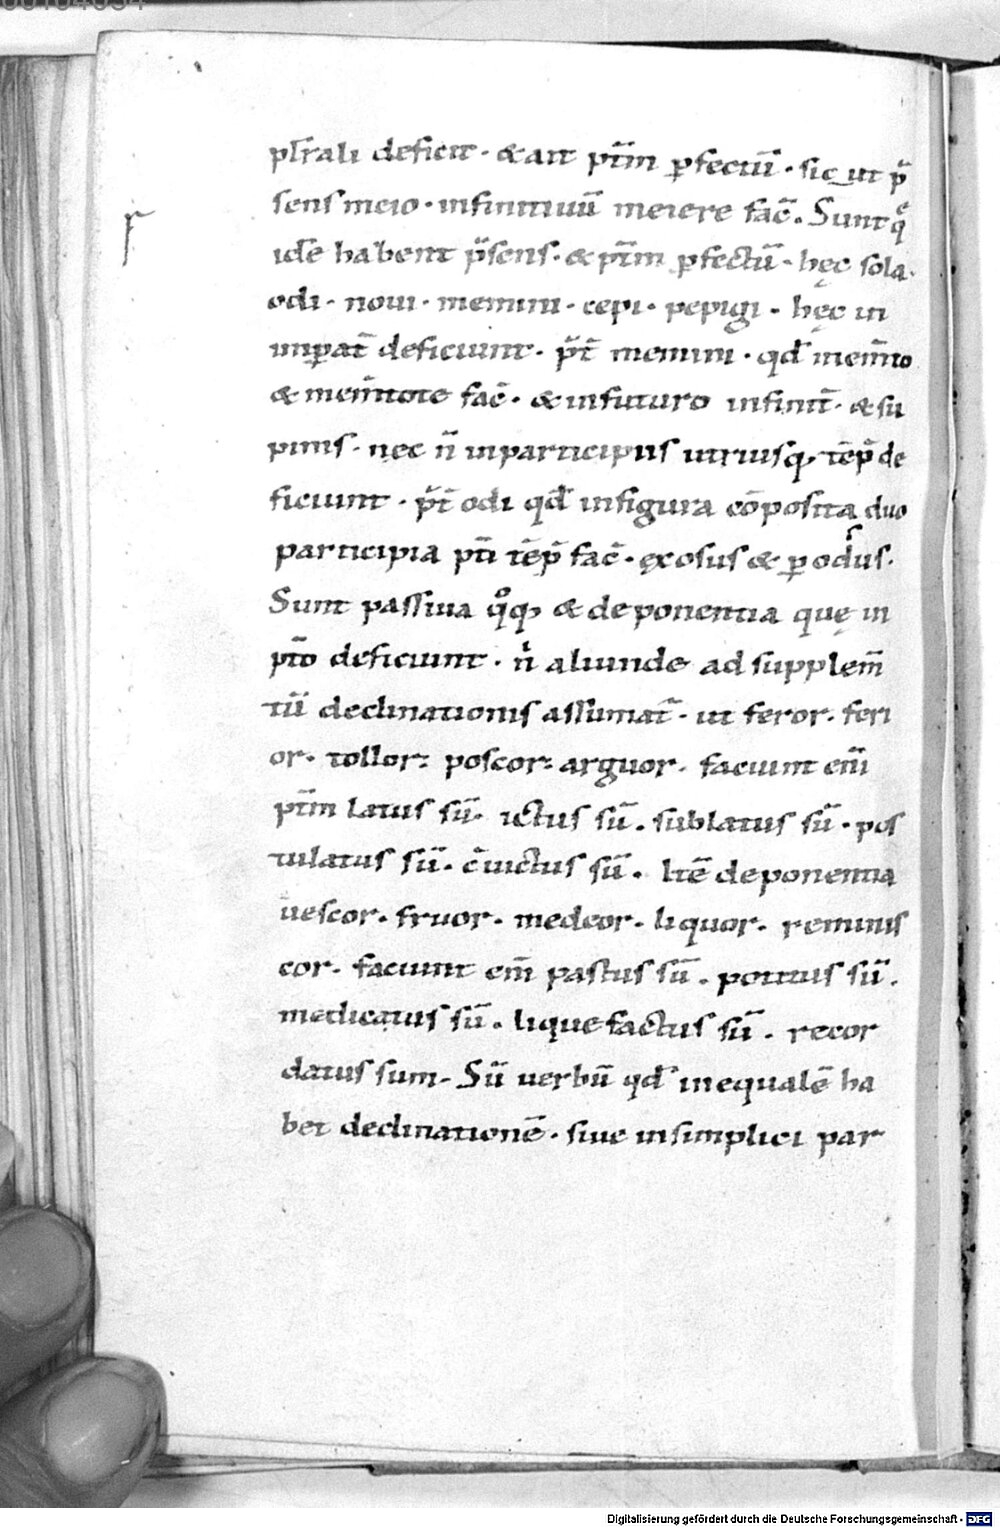 pl̅rali deficit · & ait pt̅m p̲fectu̅ · sic ut p̅
sens meio · infinitiuu̅ meiere fac̅. Sunt q̨
ide̅ habent p̅sens · & pt̅m p̲fectu̅ · hęc sola ·
odi · noui · memini · cepi · pepigi · hęc in
imp̲at̅ deficiunt · p̅t̅ memini · qd̅ mem̅to
& mem̅tote fac̅ · & in futuro infinit̅ · & su
pinis · nec n̅ in participiis utriusq; te̅p̅ de
ficiunt · p̅t̅ odi qd̅ in figura co̅posita duo
participia pt̅i te̅p̅ fac̅ · ęxosus & p̲odius ·
Sunt passiua qͦq; & deponentia quę in
pt̅o deficiunt · n̅ aliunde ad supplem̅
tu̅ declinationis assumat̅ · ut feror · feri
or · tollor · poscor · arguor · faciunt eni̅
pt̅m latus su̅ · ictus su̅ · sublatus su̅ · pos
tulatus su̅ · c̅uictus su̅ · Ite̅ deponentia
uescor · fruor · medeor · liquor · reminis
cor · faciunt eni̅ pastus su̅ · potitus su̅ ·
medicatus su̅ · liquefactus su̅ · recor
datus sum · Su̅ uerbu̅ qd̅ inequale̅ ha
bet declinatione̅ · siue in simplici par
Digitalisierung gefördert durch die Deutsche Forschungsgemeinschaft - DFG